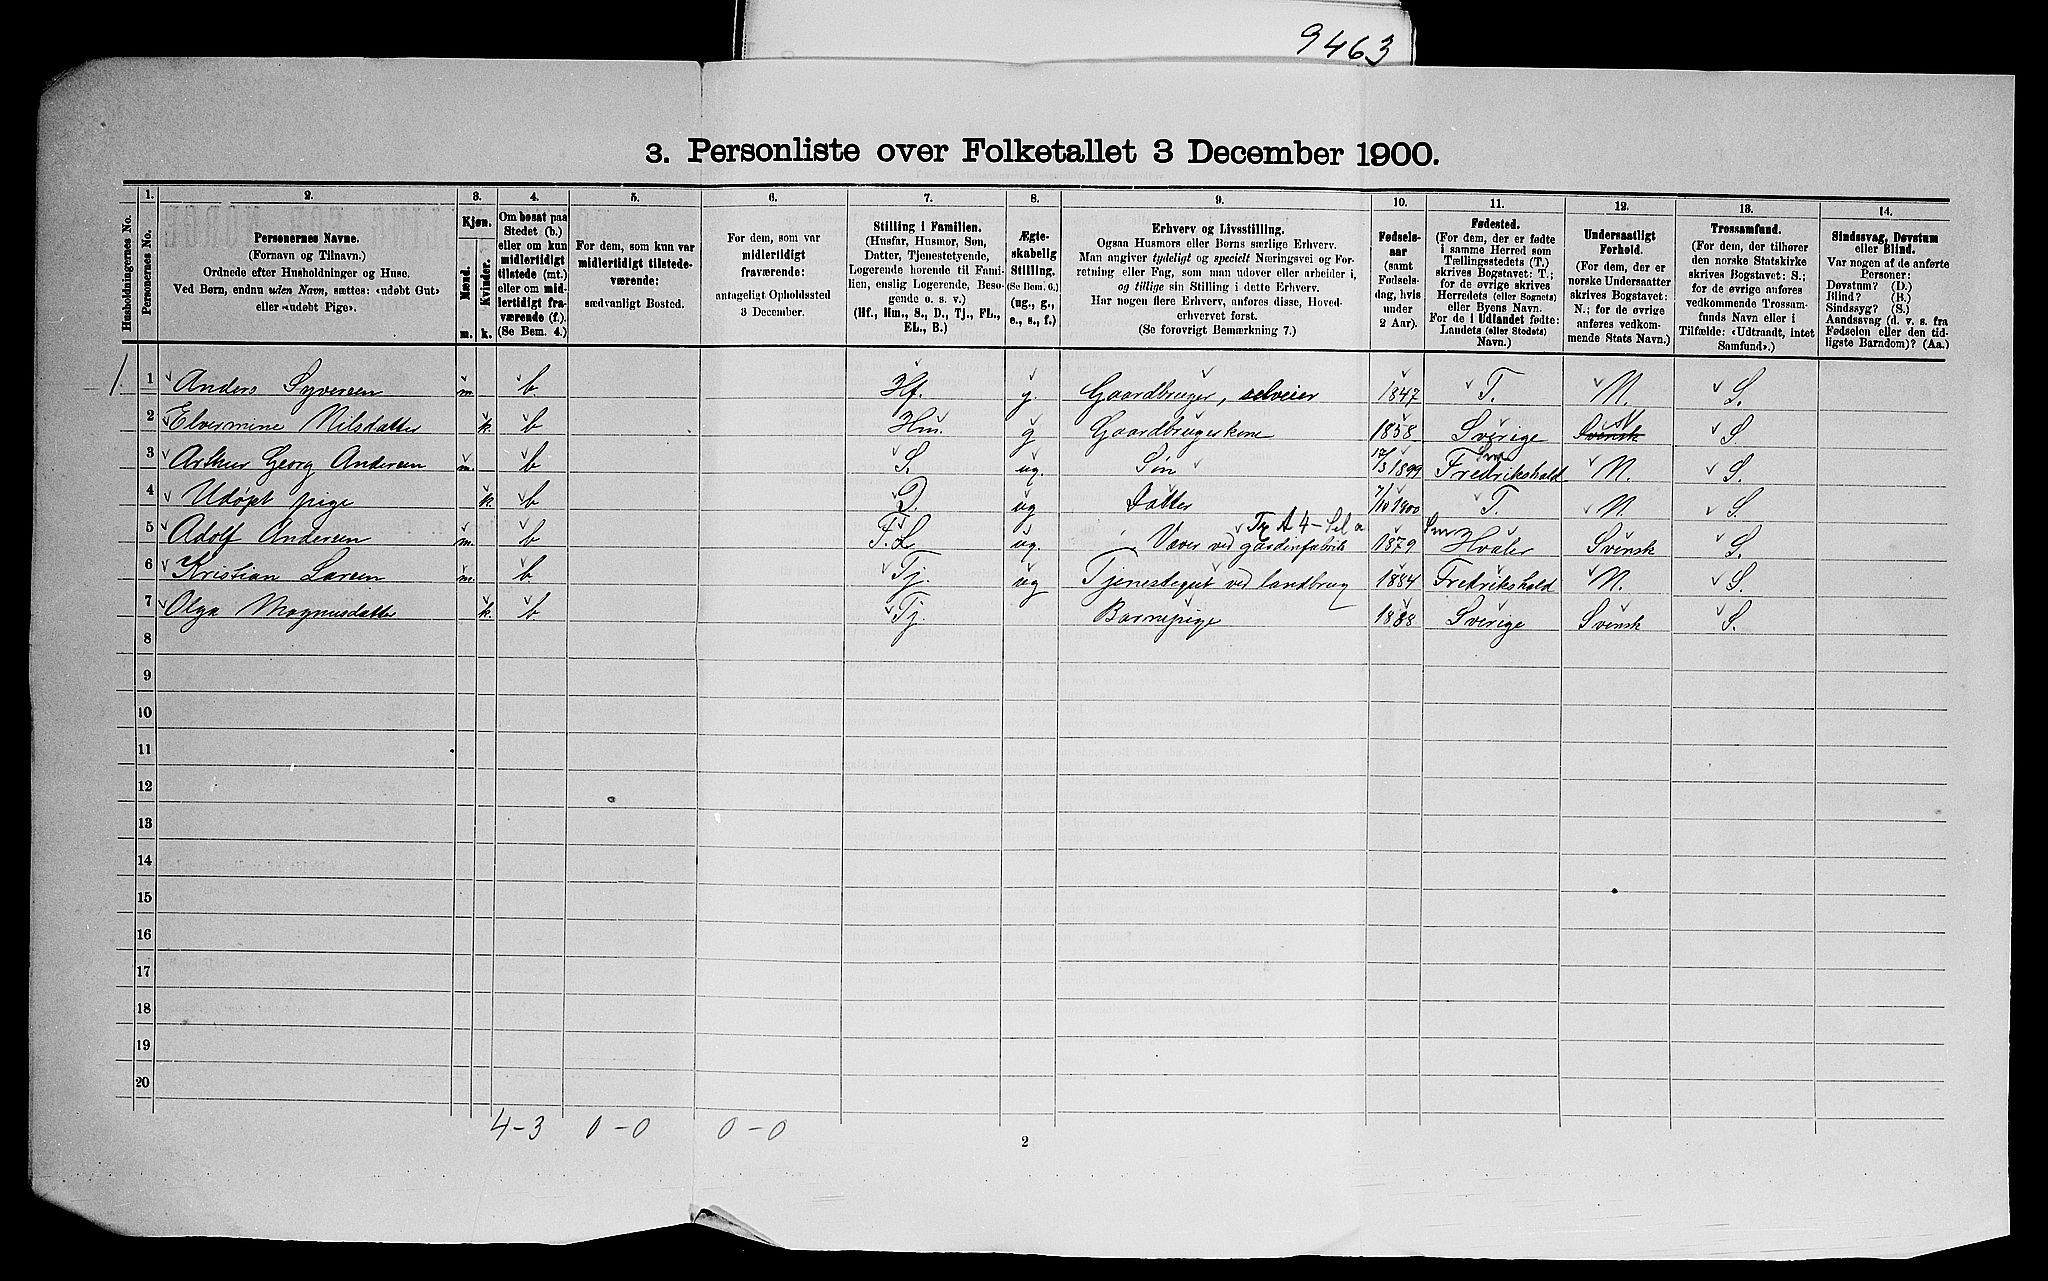 9463
3. Personliste over Folketallet 3 December 1900.
Husholdningernes No.
1. Personernes No.
2. Personernes Navne.
(Fornavn og Tilnavn.)
Ordnede efter Husholdninger og Huse.
Ved Børn, endnu uden Navn, sættes: «udøbt Gut»
eller «udøbt Pige».
3. Kjøn.
Mænd. Kvinder.
m. k.
4. Om bosat paa
Stedet (b.)
eller om kun
midlertidigt
tilstede (mt.)
eller om mid-
lertidigt fra-
værende (f.).
(Se Bem. 4.)
5. For dem, som kun var
midlertidigt tilstede-
værende:
sædvanligt Bosted.
6. For dem, som var
midlertidigt
fraværende:
antageligt Opholdssted
3 December.
7. Stilling i Familien.
(Husfar, Husmor, Søn,
Datter, Tjenestetyende,
Logerende hørende til Fami-
lien, enslig Logerende, Besø-
gende o. s. v.)
(Hf., Hm., S., D., Tj., FL.,
EL., B.)
8. Ægte-
skabelig
Stilling.
(Se Bem. 6.)
(ug., g.,
e., s., f.)
9. Erhverv og Livsstilling.
Ogsaa Husmors eller Børns særlige Erhverv.
Man angiver tydeligt og specielt Næringsvei og For-
retning eller Fag, som man udøver eller arbeider i,
og tillige sin Stilling i dette Erhverv.
Har nogen flere Erhverv, anføres disse, Hoved-
erhvervet først.
(Se forøvrigt Bemærkning 7.)
10. Fødsels-
aar
(samt
Fødsels-
dag, hvis
under
2 Aar).
11. Fødested.
(For dem, der er fødte
i samme Herred som
Tællingsstedets (T.)
skrives Bogstavet: T.;
for de øvrige skrives
Herredets (eller Sognets)
eller Byens Navn.
For de i Udlandet fødte:
Landets (eller Stedets)
Navn.)
12. Undersaatligt
Forhold.
(For dem, der er
norske Undersaatter
skrives Bogstavet:
N.; for de øvrige
anføres vedkom-
mende Stats Navn.)
13. Trossamfund.
(For dem, der tilhører
den norske Statskirke
skrives Bogstavet: S.;
for de øvrige anføres
vedkommende Trossam-
funds Navn eller i
Tilfælde: «Udtraadt, intet
Samfund».)
14. Sindssvag, Døvstum
eller Blind.
Var nogen af de anførte
Personer:
Døvstum? (D.)
Blind? (B.)
Sindssyg? (S.)
Aandssvag (d. v. s. fra
Fødselen eller den tid-
ligste Barndom)? (Aa.)
1. 1 Anders Syversen m. b. Hf. g. Gaardbruger, selveier 1847 T. N. S.
2 Elvermine Nilsdatter k. b Hm. g Gaardbrugerskone 1858 Sverige Svensk N S
3 Arthur Georg Andersen m. b S. ug. Søn 17/3 1899 Fredrikshald N. S.
4 Udøpt pige k. b D. ug Datter 7/10 1900 T. N. S.
5 Adolf Andersen m. b F. L ug. Væver ved gardinfabrik 1879 Hvaler Svensk S.
6 Kristian Larsen m. b Tj. ug Tjenestegut ved landbrug 1884 Fredrikshald N. S.
7 Olga Magnusdatter k. b. Tj. Barnepige 1888 Sverige Svensk S.
8
9
10
11
12
13
14
15
16
17
18
19
20
4-3 0-0 0-0
2